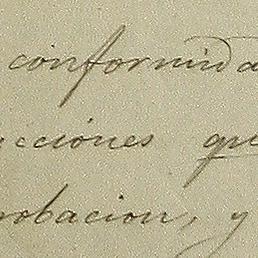 conformida
cciones qu
robacion, y